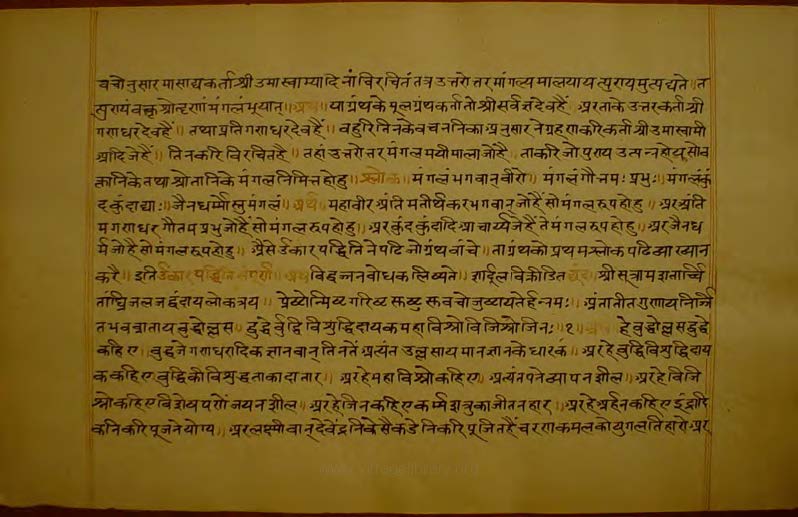 वचोनुसारमासाद्यकर्ताश्रीउमास्वाम्यादिनांविरचितंतत्रउत्तरोत्तरमांगल्यमालयायत्पुण्यमुत्पद्यते॥त
त्पुण्यंवक्तृश्रोतॄणांमंगलंभूयात्॥अर्थ॥याग्रंथकेमूलग्रंथकर्तातोश्रीसर्वज्ञदेवहैं॥अरताकेउत्तरकर्ताश्री
गणधरदेवहैं॥तथाप्रतिगणधरदेवहैं॥बहुरितिनकेवचननिकाअनुसारनेग्रहणकरिकर्ताश्रीउमास्वामी
आदिजेहैं॥तिनकरिविरचितहै॥तहांउत्तरोत्तरमंगलमयीमालाजोहै॥ताकरिजोपुण्यउत्पन्नहोयसोव
क्तानिकेतथाश्रोतानिकेमंगलनिमित्तहोहु॥श्लोक॥मंगलंभगवान्वीरो॥मंगलंगौतमःप्रभुः॥मंगलंकुं
दकुंदाद्याः॥जैनधर्मोस्तुमंगलं॥अर्थ॥महावीरअंतिमतीर्थंकरभगवान्जोहैंसोमंगलरूपहोहु॥अरअंति
मगणधरगौतमप्रभुजोहैंसोमंगलरूपहोहु॥अरकुंदकुंदादिआचार्यजेहैंतेमंगलरूपहोहु॥अरजैनध
र्मजोहैसोमंगलरूपहोहु॥ऐसेंउंकारपद्धतिनेपढिजोग्रंथवांचे॥ताग्रंथकोप्रथमश्लोकपढिव्याख्यान
करै॥इतिउंकारपद्धतिसंपूर्ण॥अथविद्वज्जनबोधकलिख्यते॥शार्दूलविक्रीडितछंद॥श्रीसूत्रामशतार्च्चि
तांघ्रिजलजद्वंदायलोकत्रय॥
तभवव्रातायबुद्धोल्लस॥बुद्धेर्बुद्धिविशुद्धिदायकमहाविश्नोविजिश्नोजिनः॥१॥अर्थ॥हेबुद्धोल्लसद्बुद्धे
कहिए॥बुद्धजेगणधरादिकज्ञानवान्तिनतेंअत्यंतउल्लसायमानज्ञानकेधारक॥अरहेबुद्धिविशुद्धिदाय
ककहिएबुद्धिकीविशुद्धताकादातार॥अरहेमहाविश्नोकहिए॥अत्यंतपनेव्यापनशील॥अरहेविजि
श्नोकहिएविशेषपणेंजयनशील॥अरहेजिनकहिएकर्म्मशत्रुकाजीतनहार॥अरहेअर्हन्कहिएइंद्रादि
कनिकरिपूजनेयोग्य॥अरलक्ष्मीवान्देवेंद्रनिकेसैकडेनिकरिपूजितहैंचरणकमलकोयुगलतिहारो॥अर